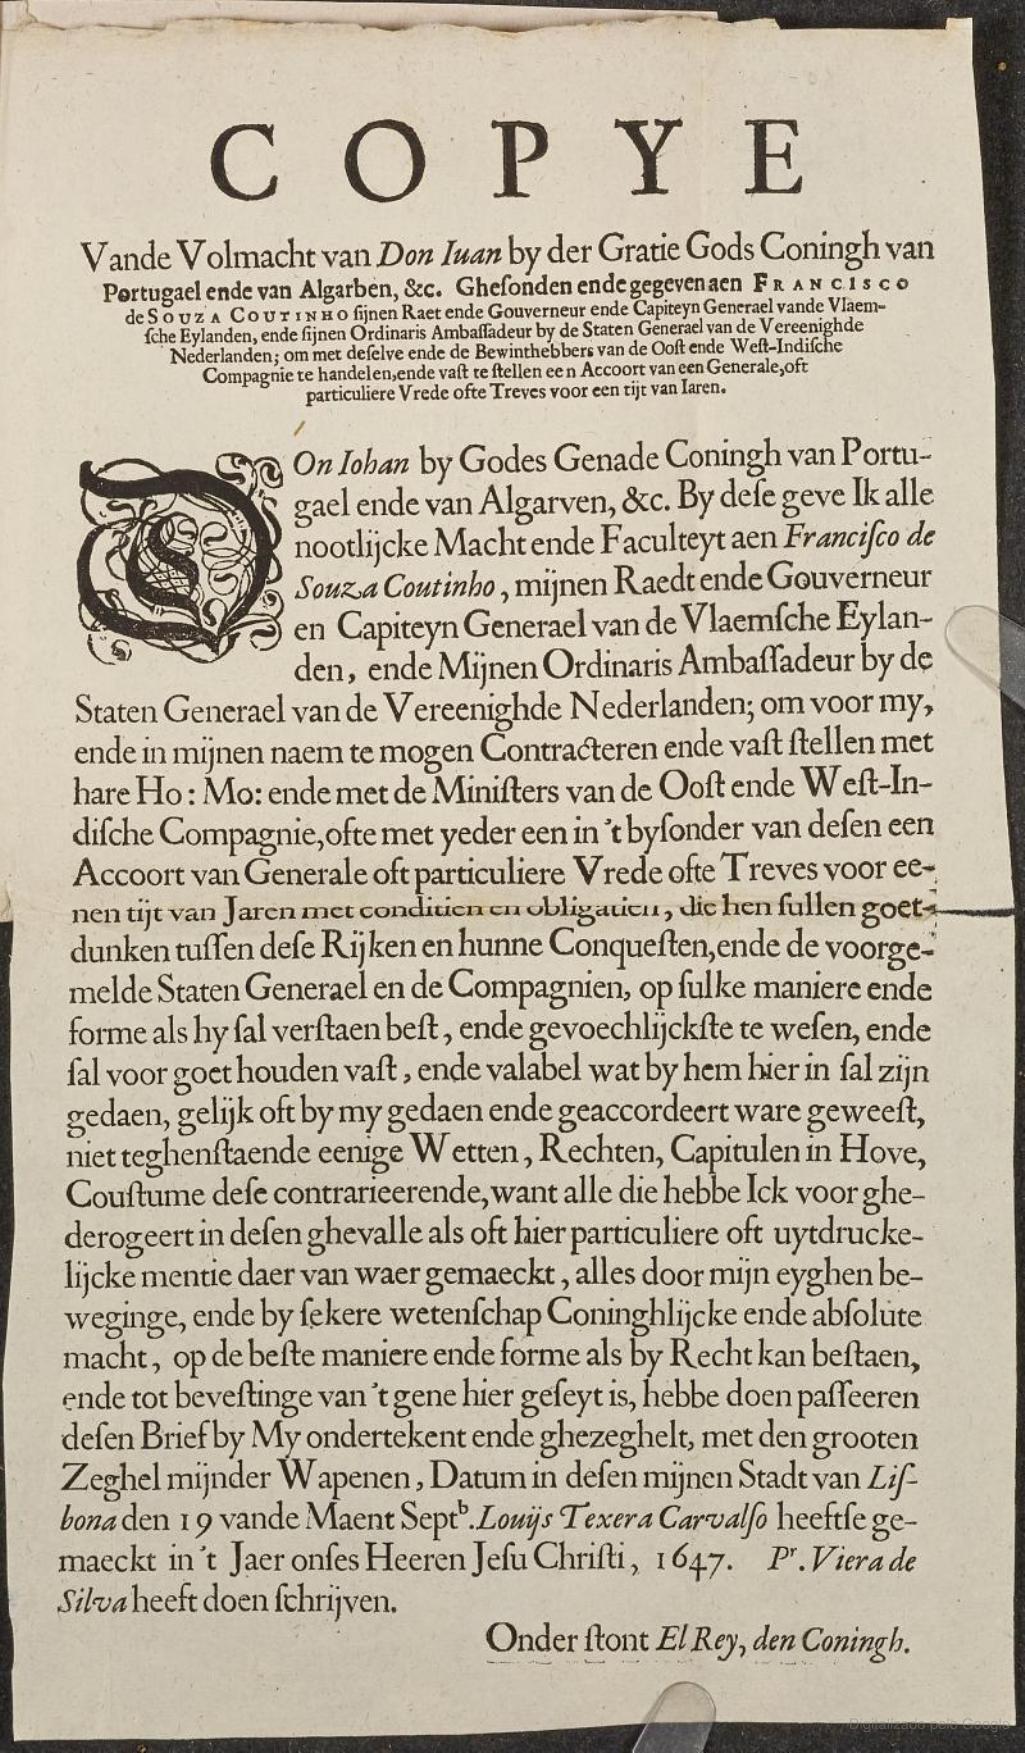 COPYE
Vande Volmacht van Don Iuan by der Gratie Gods Coningh van
Portugael ende van Algarben, &c. Gheſonden ende gegeven aen FRANCISCO
de SOUZA COUTINHO ſijnen Raet ende Gouverneur ende Capiteyn Generael vande Vlaem-
ſche Eylanden, ende ſijnen Ordinaris Ambaſſadeur by de Staten Generael van de Vereenighde
Nederlanden; om met deſelve ende de Bewinthebbers van de Ooſt ende Weſt-Indiſche
Compagnie te handelen, ende vaſt te ſtellen een Accoort van een Generale, oft
particuliere Vrede ofte Treves voor een tijt van Iaren.
DOn Iohan by Godes Genade Coningh van Portu-
gael ende van Algarven, &c. By deſe geve Ik alle
nootlijcke Macht ende Faculteyt aen Franciſco de
Souza Coutinho, mijnen Raedt ende Gouverneur
en Capiteyn Generael van de Vlaemſche Eylan-
den, ende Mijnen Ordinaris Ambaſſadeur by de
Staten Generael van de Vereenighde Nederlanden; om voor my,
ende in mijnen naem te mogen Contracteren ende vaſt ſtellen met
hare Ho: Mo: ende met de Miniſters van de Ooſt ende Weſt-In-
diſche Compagnie, ofte met yeder een in 't byſonder van deſen een
Accoort van Generale oft particuliere Vrede ofte Treves voor ee-
nen tijt van Jaren met conditien en obligatien, die hen ſullen goet-
dunken tuſſen deſe Rijken en hunne Conqueſten, ende de voorge-
melde Staten Generael en de Compagnien, op ſulke maniere ende
forme als hy ſal verſtaen beſt, ende gevoechlijckſte te weſen, ende
ſal voor goet houden vaſt, ende valabel wat by hem hier in ſal zijn
gedaen, gelijk oft by my gedaen ende geaccordeert ware geweeſt,
niet teghenſtaende eenige Wetten, Rechten, Capitulen in Hove,
Couſtume deſe contrarieerende, want alle die hebbe Ick voor ghe-
derogeert in deſen ghevalle als oft hier particuliere oft uytdrucke-
lijcke mentie daer van waer gemaeckt, alles door mijn eyghen be-
weginge, ende by ſekere wetenſchap Coninghlijcke ende abſolute
macht, op de beſte maniere ende forme als by Recht kan beſtaen,
ende tot beveſtinge van 't gene hier geſeyt is, hebbe doen paſſeeren
deſen Brief by My ondertekent ende ghezeghelt, met den grooten
Zeghel mijnder Wapenen, Datum in deſen mijnen Stadt van Liſ-
bona den 19 vande Maent Septb. Louijs Texera Carvalſo heeftſe ge-
maeckt in 't Jaer onſes Heeren Jeſu Chriſti, 1647. Pr. Viera de
Silva heeft doen ſchrijven.
Onder ſtont El Rey, den Coningh.
Digitalizado pelo Google